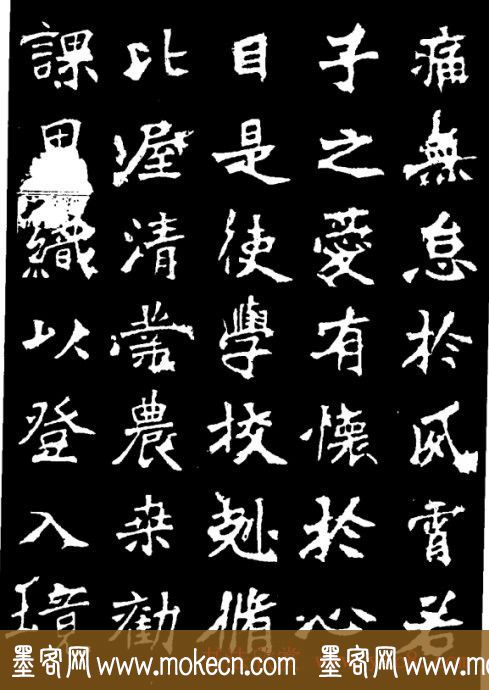 痛無怠於夙宵若
子之愛有懷於心
目是使學校剋脩
比屋清業農桑勸
課田織以登入境
墨客网 www.mokecn.com 墨客网 www.mokecn.com